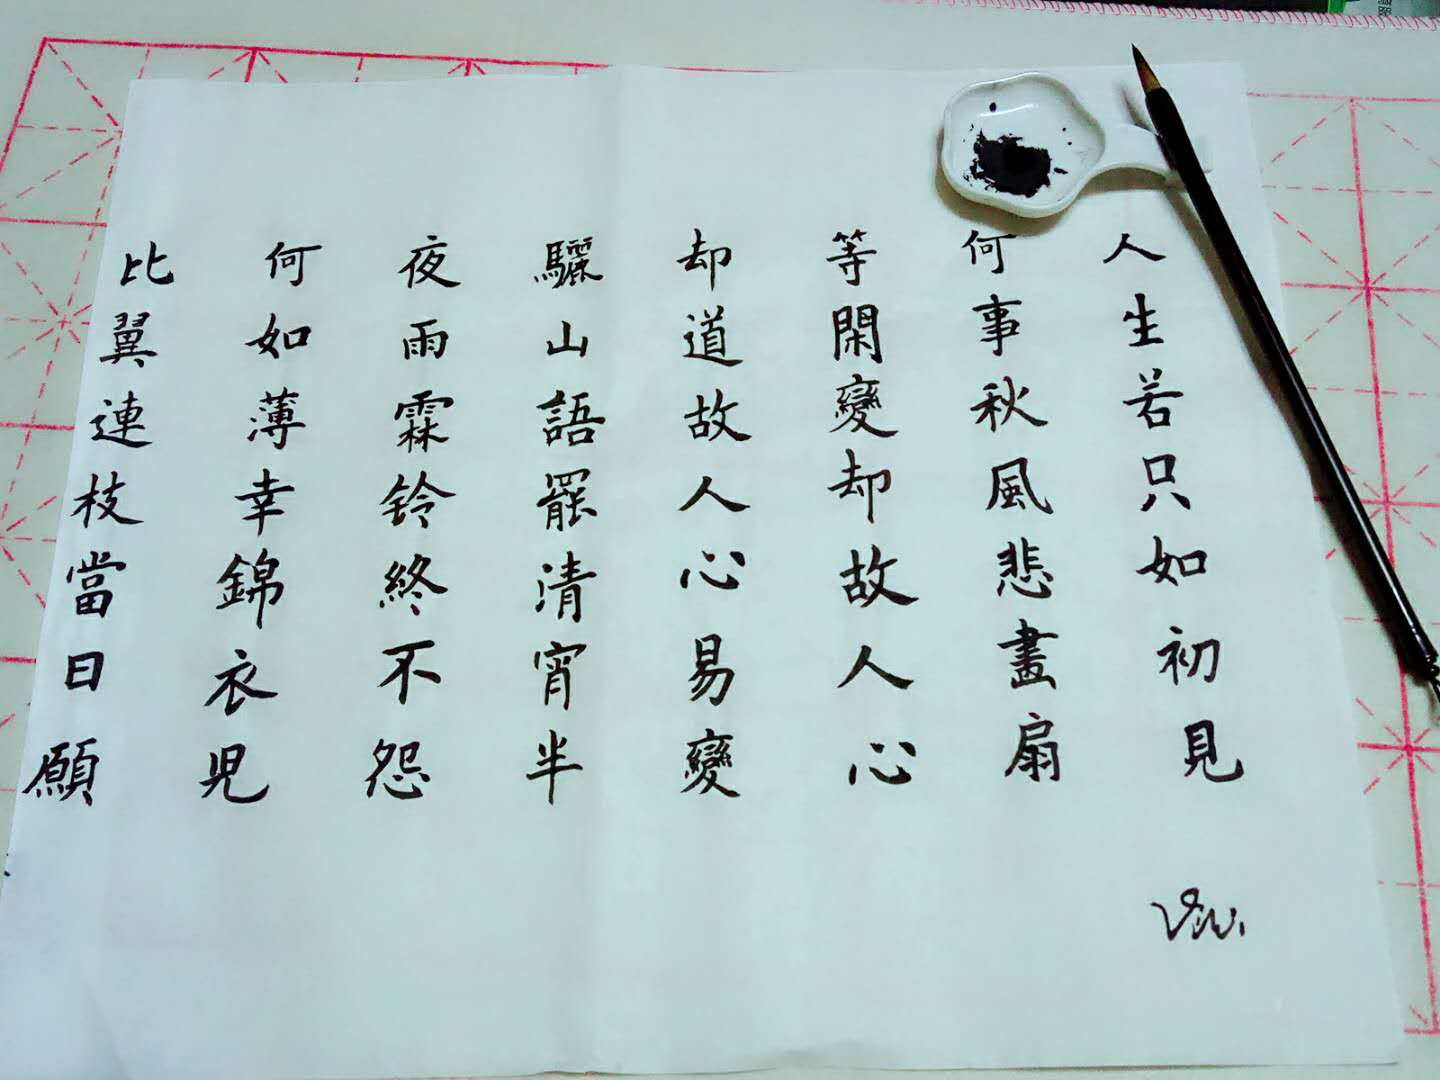 人生若只如初見
何事秋風悲畫扇
等閑變却故人心
却道故人心易變
驪山語罷清宵半
夜雨霖铃終不怨
何如薄幸錦衣児
比翼連枝當日願